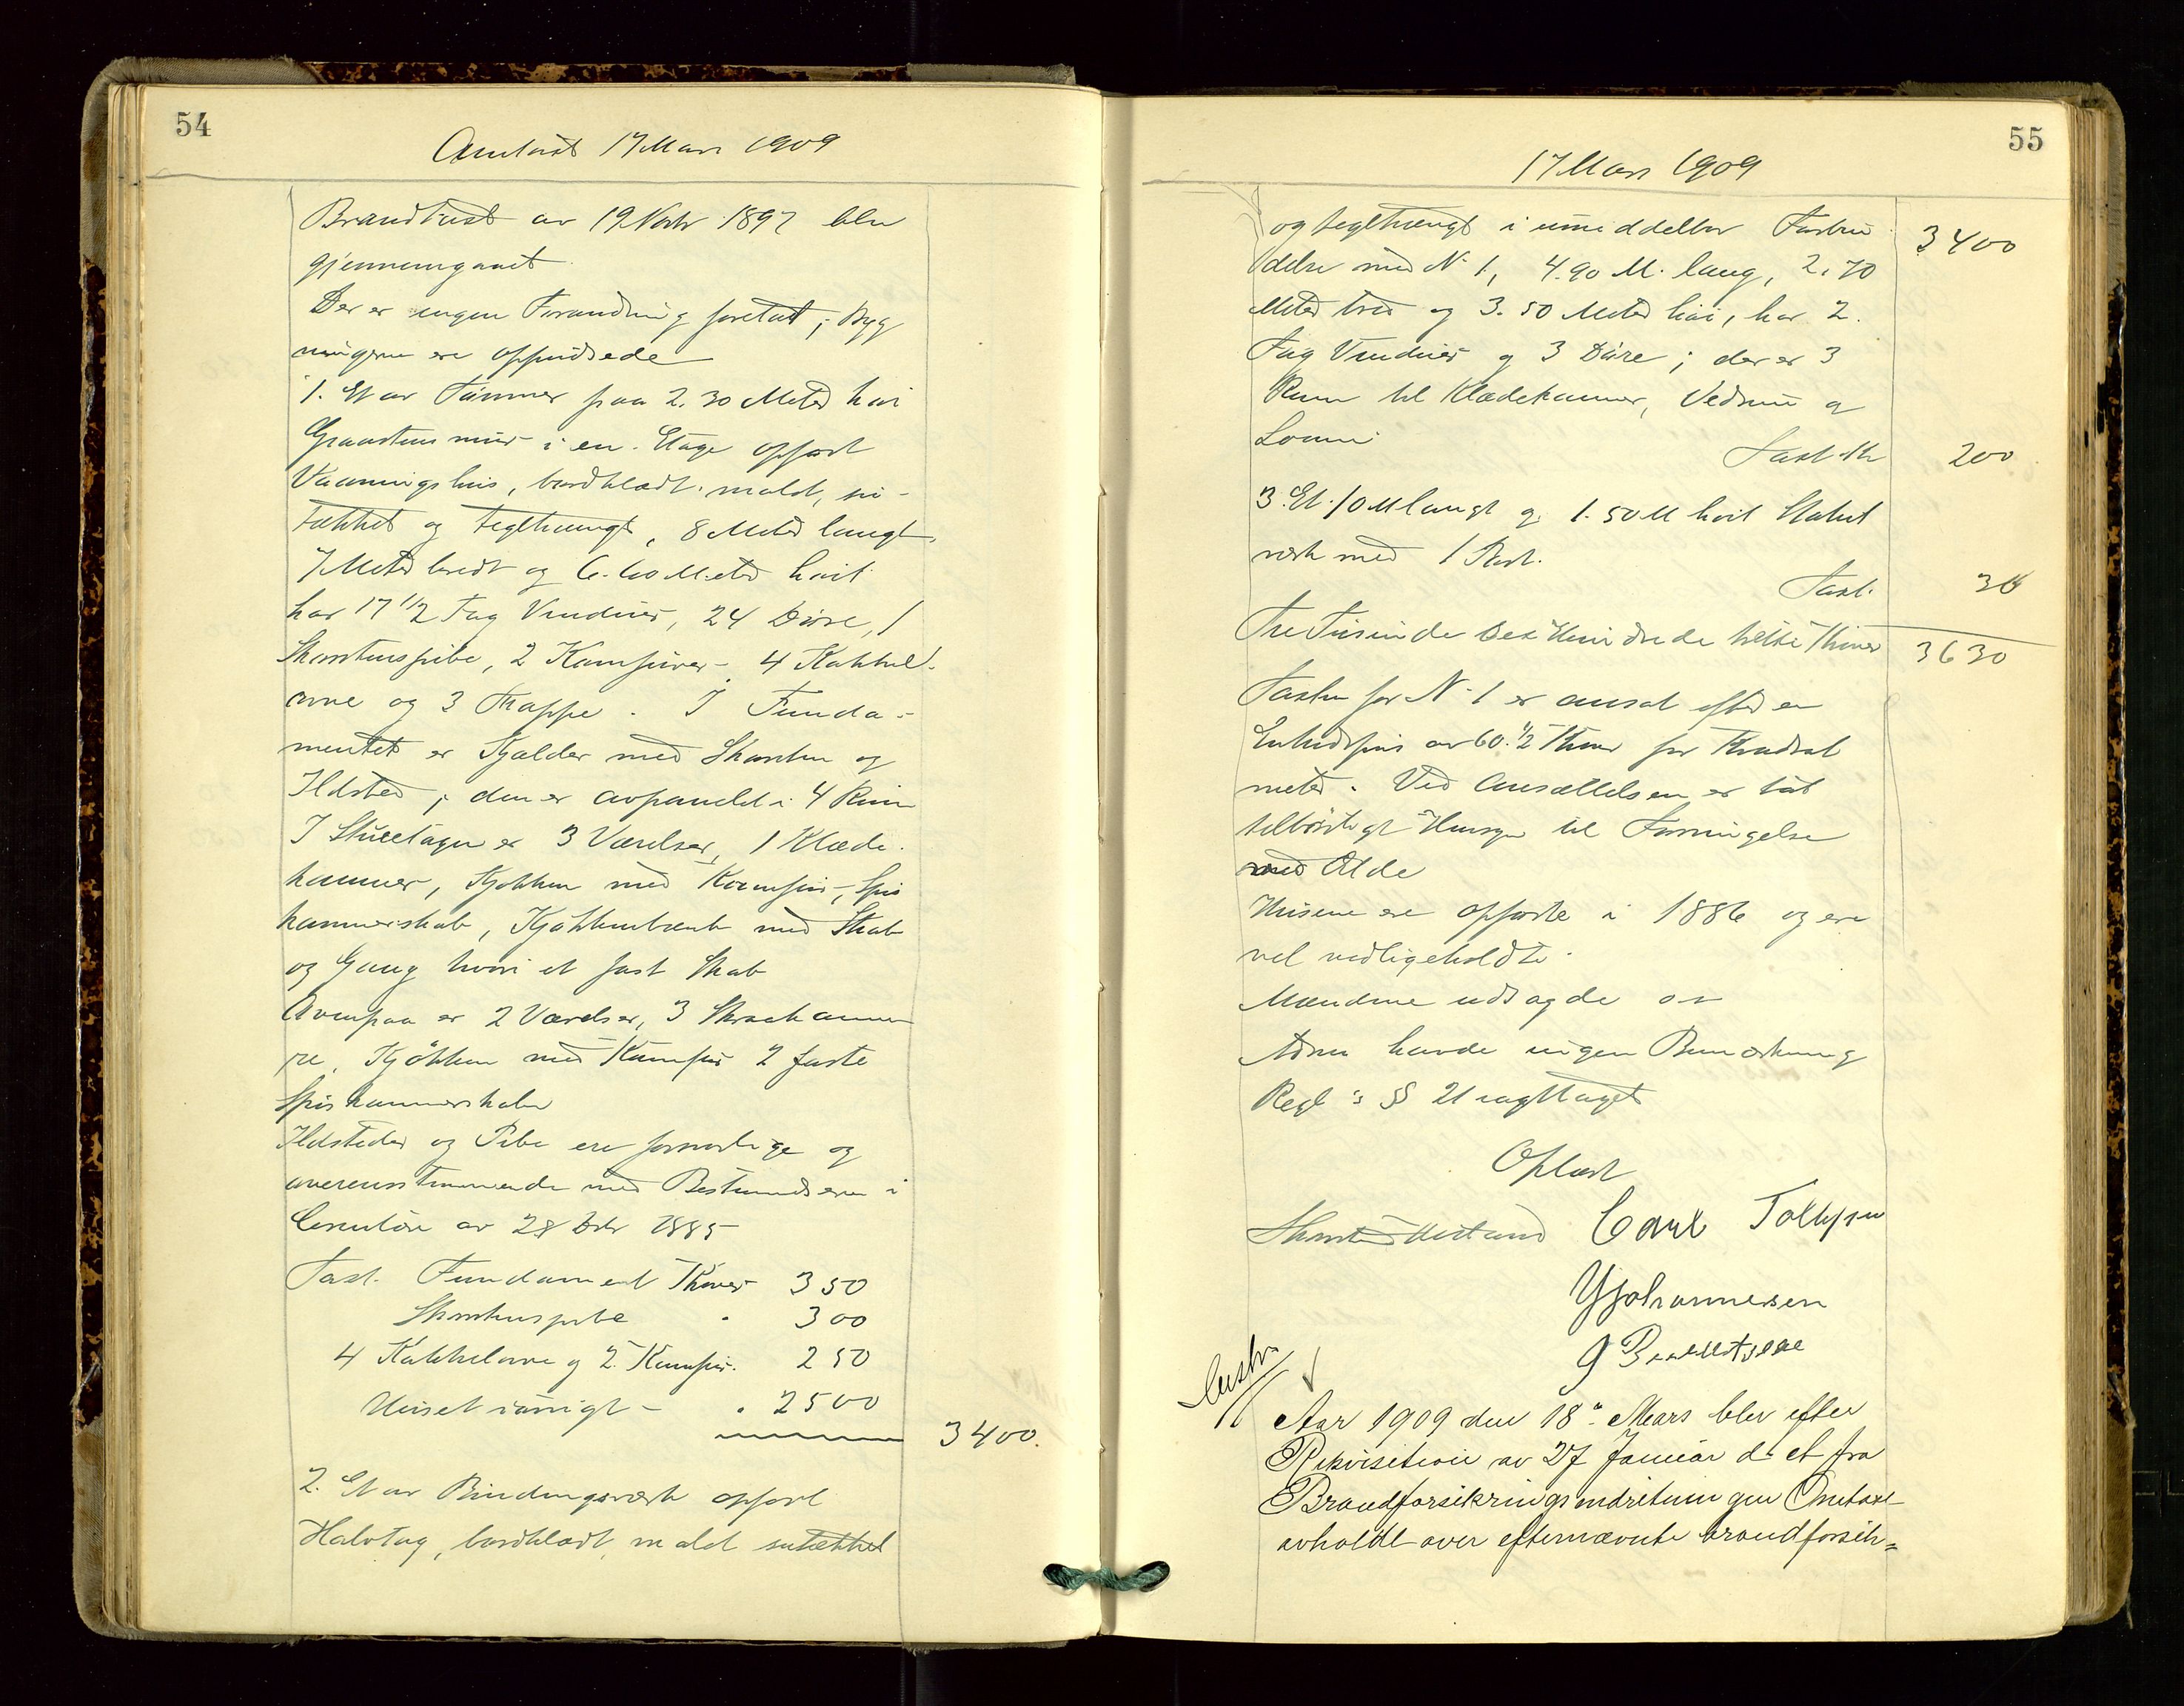 54
Omtaxt 17 Mars 1909
Brandtaxt av 19 Novbr 1897 blev
gjennemgaaet.
Der er ingen Forandring foretat; Byg
ningerne ere oppudsede
1. Et av Tømmer paa 2.30 Meter høi
Graastensmur i en Etage opført
Vaaningshus, bordklædt malet, ni-
tækket og teglhængt, 8 Meter langt,
7 Meter bredt og 6.60 Meter høit
har 17 1/2 Fag Vinduer, 24 Døre, 1
Skorstenspibe, 2 Komfurer, 4 Kakkel-
ovne og 3 Trappe. I Funda-
mentet er Kjælder med Skorsten og
Ildsted; den er avpanelet i 4 Rum
I Stueetagen er 3 Værelser, 1 Klæde-
kammer, Kjøkken med Komfur, Spis
kammerskab, Kjøkkenbænk med Skab
og Gang hvori et fast Skab
Ovenpaa er 2 Værelser, 3 Skraakamme
re, Kjøkken med Komfur 2 faste
Spiskammerskabe
Ildsteder og Pibe ere forsvarlige og
overensstemmende med Bestemmelserne i
av 28 Dcbr 1885
Taxt. Fundament Kroner 350
Skorstenspibe " 300
4 Kakkelovne og 2 Komfur. 250
Huset iøvrigt - " 2500
3400.
2. Et av Bindingsværk opført
Halvtag, bordklædt, malet sutækket
55
17 Mars 1909
og teglhængt i umiddelbar Forbin 3400
delse med N. 1, 4.90 M. lang, 2.70
Meter bred og 3.50 Meter høi, har 2
Fag Vinduer og 3 Døre; der er 3
Rum til Klædekammer, Vedrum og
Lo
Taxt Kr 200
3. Et 10 M langt og 1.50 M høit Stakit
værk med 1 Port.
Taxt. 30
Tre Tusinde Sex Hundrede tretti Kroner 3630
Taxten for N. 1 er ansat efter en
Enhedspris av 60 1/2 Kroner per Kvadrat
meter. Ved Ansættelsen er tat
tilbørligt Hensyn til Forringelse
ved Ælde
Husene ere opførte i 1886 og ere
vel vedligeholdte.
Mændene udsagde os
havde ingen Bemærkning
Regl.s §§ 21 iagttaget
Oplæst
Carl Tollefsen
Johannessen
Aar 1909 den 18de Mars blev efter
Rekvisition av 27 Januar d. A. fra
Brandforsikringsindretningen Omtaxt
avholdt over efternævnte brandforsik=